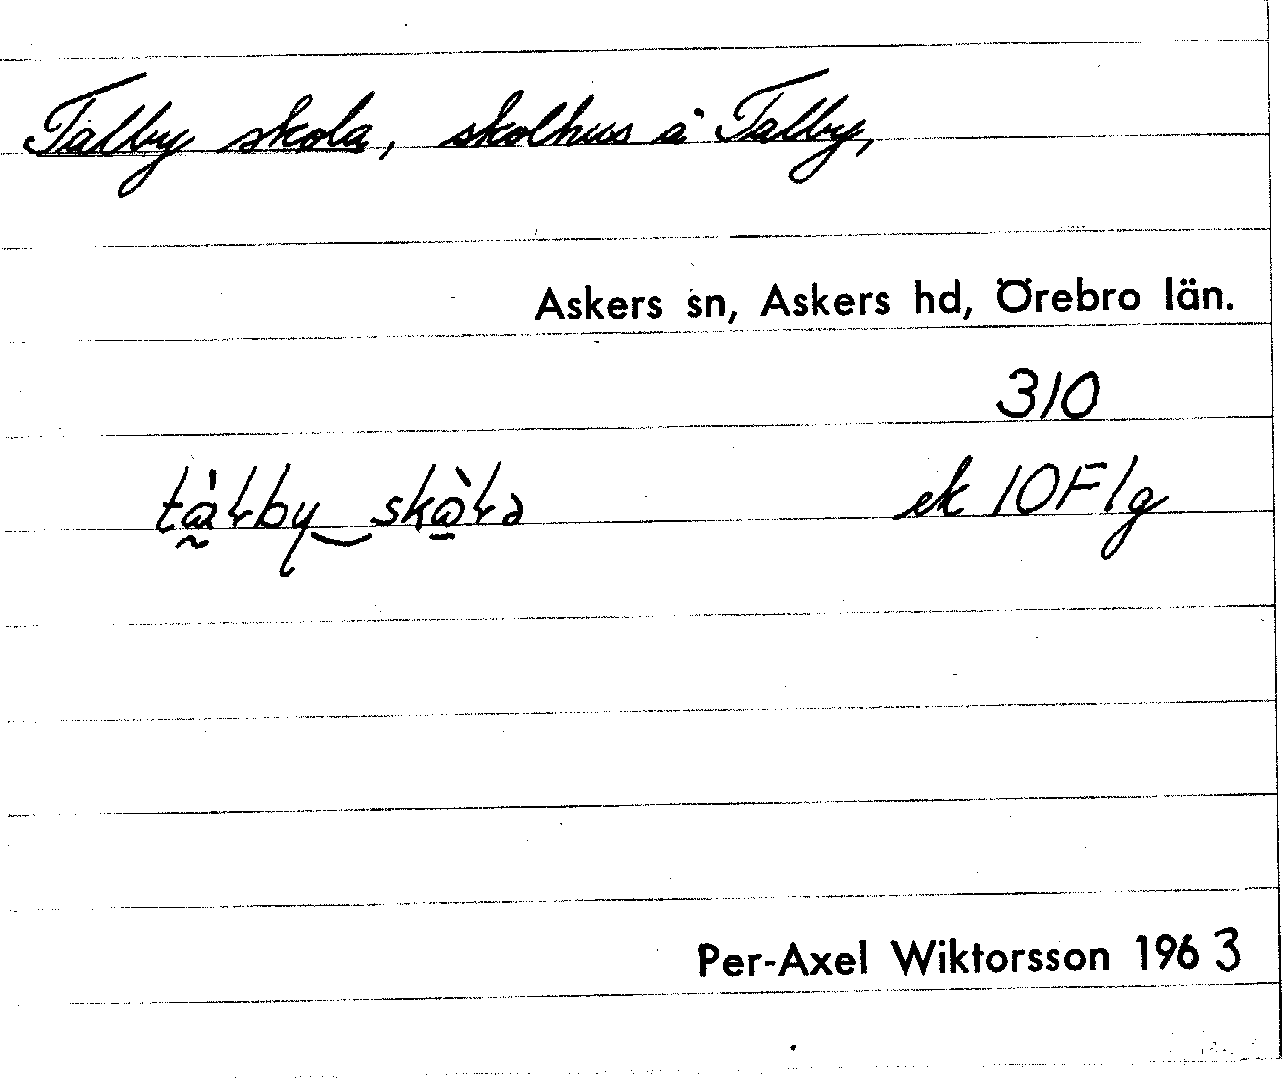 Talby skola, skolhus å Talby,
Askers sn, Askers hd, Örebro län.
310
ek 10F1g
Per-Axel Wiktorsson 1963